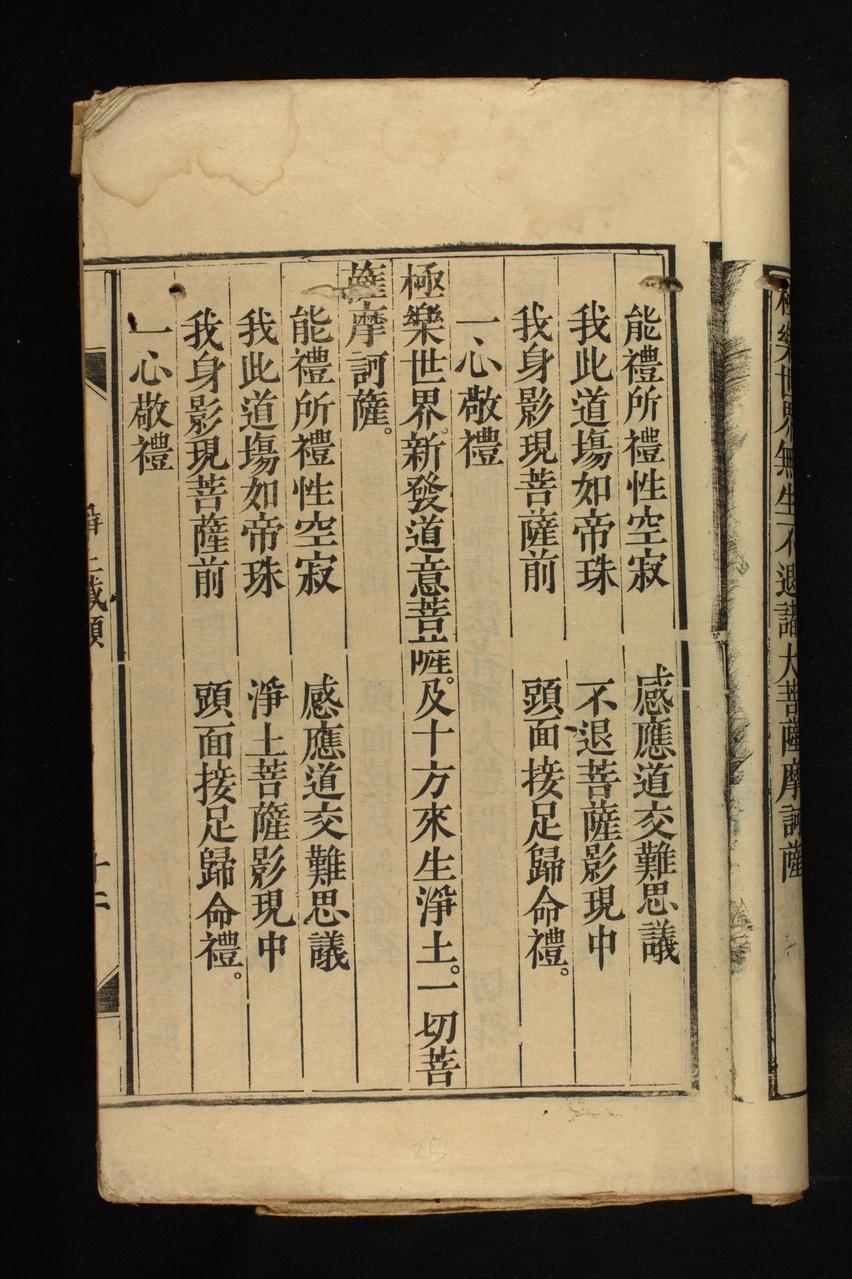 極樂世界無生不退諸大菩薩摩訶薩
能禮所禮性空寂　感應道交難思議
我此道塲如帝珠　不退菩薩影現中
我身影現菩薩前　頭面接足歸命禮。
一心敬禮
極樂世界。新發道意菩薩。及十方來生淨土。一切菩
薩摩訶薩。
能禮所禮性空寂　感應道交難思議
我此道塲如帝珠　淨土菩薩影現中
我身影現菩薩前　頭面接足歸命禮。
一心敬禮
十二
25